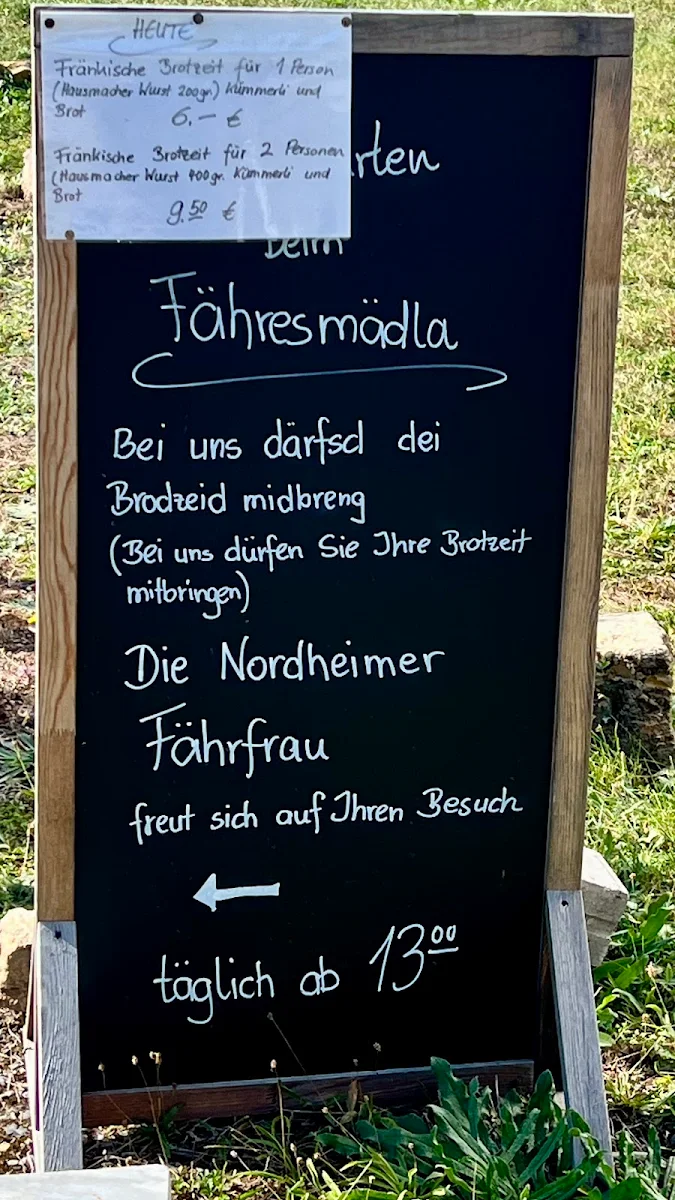 HEUTE
Fränkische Brotzeit für 1 Person
(Hausmacher Wurst 200gr) Kümmerli und
Brot
6.– €
Fränkische Brotzeit für 2 Personen
(Hausmacher Wurst 400gr. Kümmerli und
Brot
9.50 €
rten
beim
Fähresmädla
Bei uns därfsd dei
Brodzeid midbreng
(Bei uns dürfen Sie Ihre Brotzeit
mitbringen)
Die Nordheimer
Fährfrau
freut sich auf Ihren Besuch
täglich ab 13⁰⁰